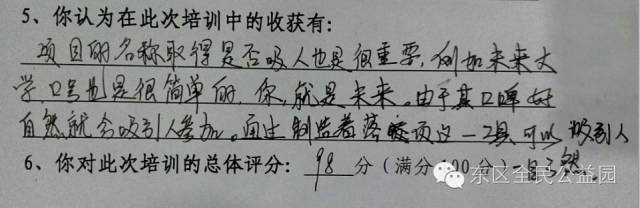 5、你认为在此次培训中的收获有:
项目的名称取得是否吸人也是很重要,例如未来大
学口号也是很简单的,你,就是未来。由于其口碑好
自然就会吸引人参加。而过制造着落项这一工具可以 吸引人
6、你对此次培训的总体评分: 98 分(满分100分)一目了然。
东区全民公益园